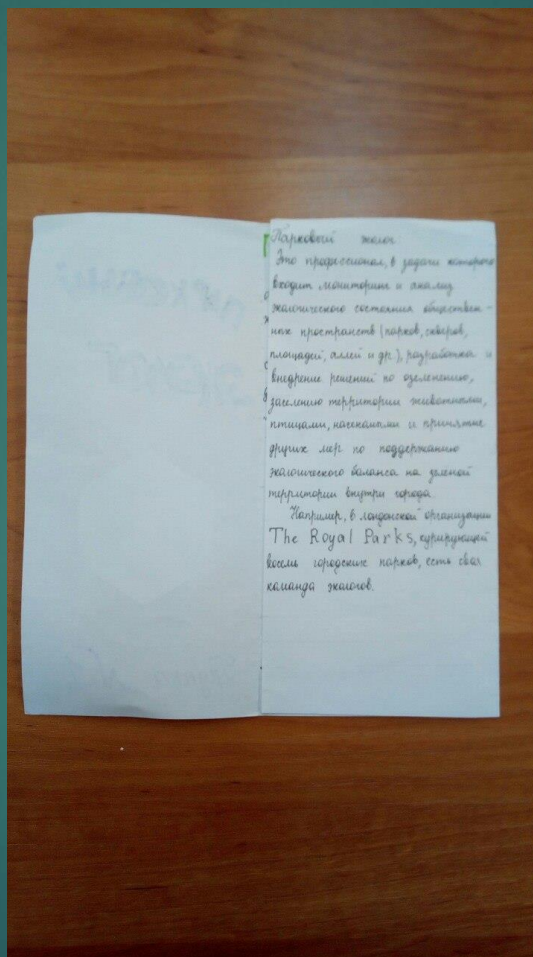 Парковый эколог
Это профессионал, в задачи которого
входит мониторинг и анализ
экологического состояния обществен-
ных пространств (парков, скверов,
площадей, аллей и др.), разработка и
внедрение решений по озеленению,
заселению территории животными,
птицами, насекомыми и принятие
других мер по поддержанию
экологического баланса на зеленой
территории внутри города.
Например, в лондонской организации
The Royal Parks, курирующей
восемь городских парков, есть своя
команда экологов.